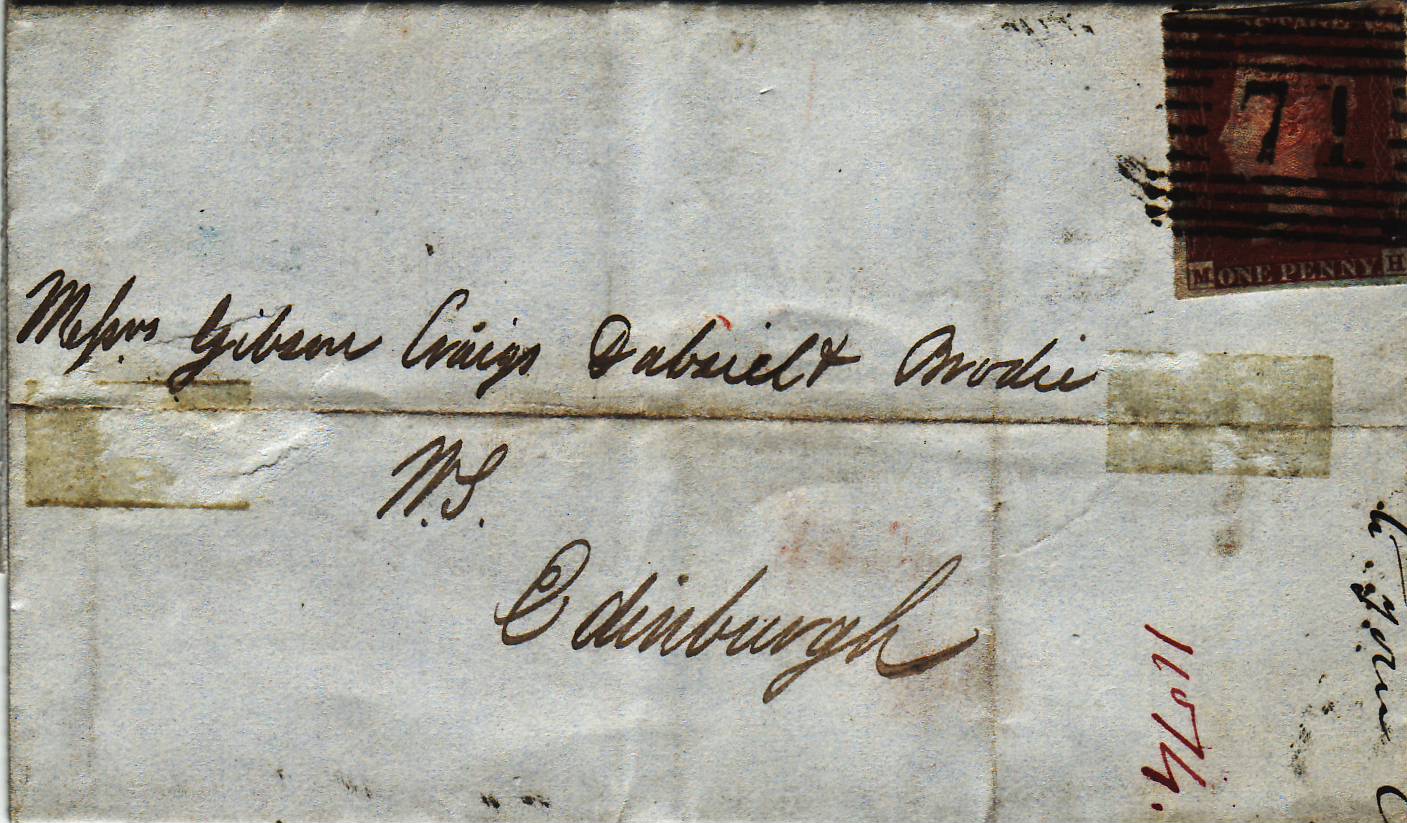 71
M ONE PENNY H
Messrs Gibson Craigs Dalziel & Brodie
W.S.
Edinburgh